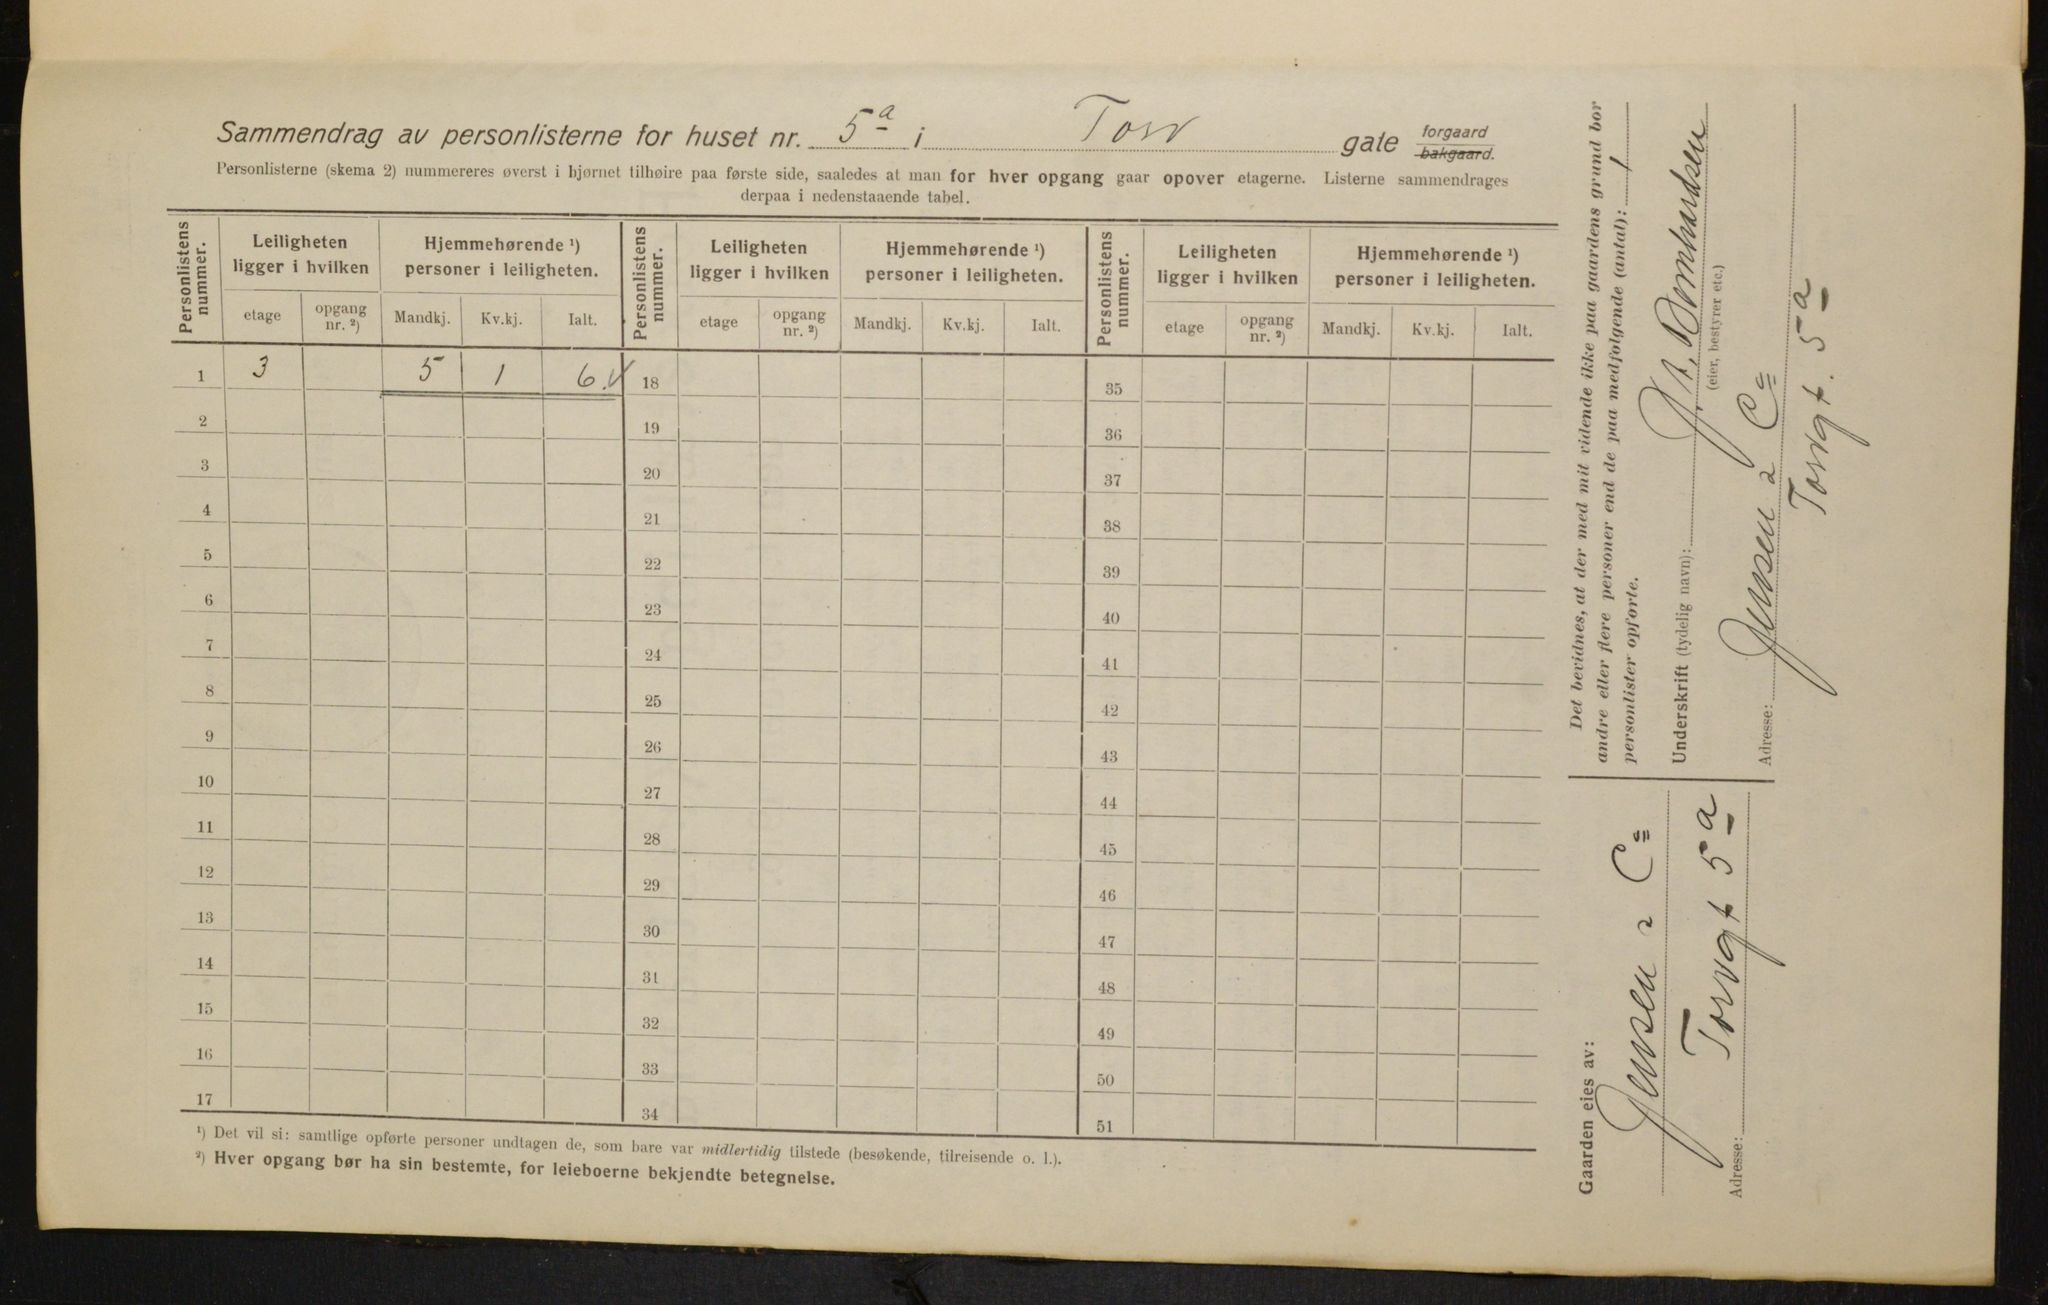 Sammendrag av personlisterne for huset nr. 5a i Torv gate forgaard bakgaard.
Personlisterne (skema 2) nummereres øverst i hjørnet tilhøire paa første side, saaledes at man for hver opgang gaar opover etagerne. Listerne sammendrages
derpaa i nedenstaaende tabel.
Personlistens nummer. Leiligheten ligger i hvilken Hjemmehørende ¹) personer i leiligheten. Personlistens nummer. Leiligheten ligger i hvilken Hjemmehørende ¹) personer i leiligheten. Personlistens nummer. Leiligheten ligger i hvilken Hjemmehørende ¹) personer i leiligheten.
etage opgang nr. ²) Mandkj. Kv.kj. Ialt. etage opgang nr. ²) Mandkj. Kv.kj. Ialt. etage opgang nr. ²) Mandkj. Kv.kj. Ialt.
1 3 5 1 6. 18 35
2 19 36
3 20 37
4 21 38
5 22 39
6 23 40
7 24 41
8 25 42
9 26 43
10 27 44
11 28 45
12 29 46
13 30 47
14 31 48
15 32 49
16 33 50
17 34 51
¹) Det vil si: samtlige opførte personer undtagen de, som bare var midlertidig tilstede (besøkende, tilreisende o. l.).
²) Hver opgang bør ha sin bestemte, for leieboerne bekjendte betegnelse.
Det bevidnes, at der med mit vidende ikke paa gaardens grund bor
andre eller flere personer end de paa medfølgende (antal): 1
personlister opførte.
Underskrift (tydelig navn):
(eier, bestyrer etc.)
Adresse: Jensen & Co
Torvgt. 5a
Gaarden eies av:
Jensen & Co
Adresse: Torvgt 5a